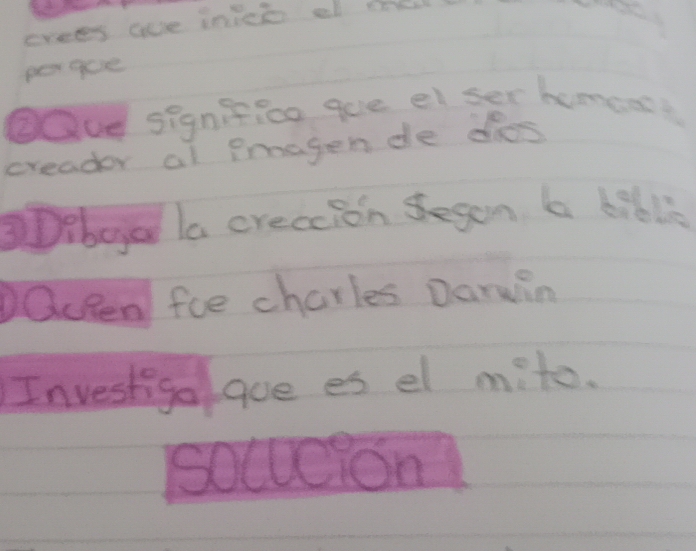 crees que inició el
porque
② Que significa que el ser humano
creador al imagen de dios
3 Dibuja la creación segun la biblia
Quien fue charles Darwin
Investiga que es el mito.
SOLUCIÓN